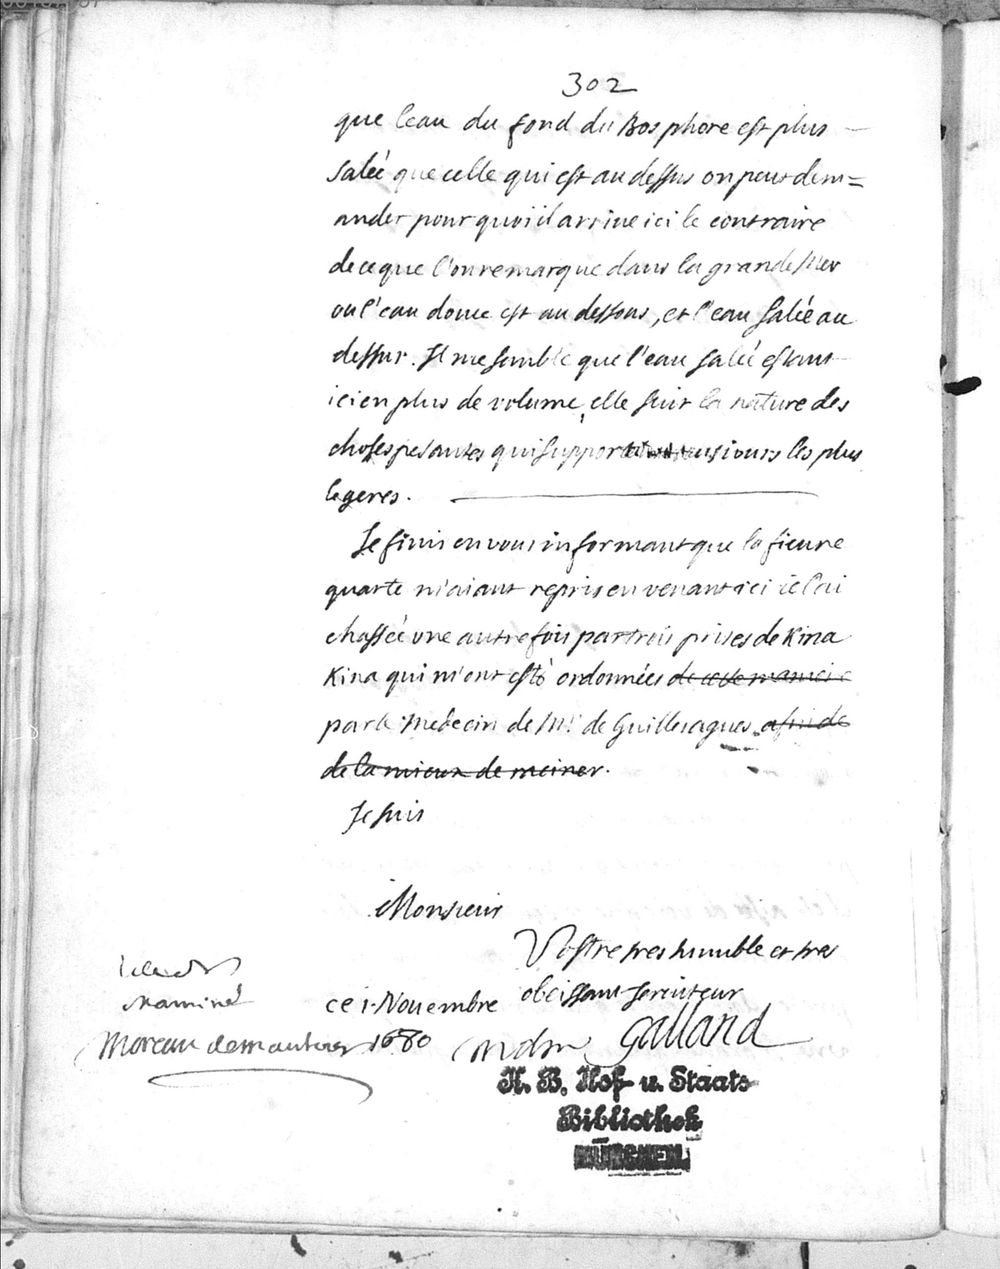 302
que l'eau du fond du Bosphore est plus
salée que celle qui est au dessus on peut dem=
ander pourquoi il arriue ici le contraire
de ce que l'on remarque dans la grande Mer
ou l'eau douce est au dessous, et l'eau salée au
dessus. Il me semble que l'eau salée estant
ici en plus de volume, elle suit la nature des
choses pesantes qui supportent tousiours les plus
legeres.
Je finis en vous informant que la fieure
quarte m'aiant repris en venant ici ie l'ai
chassée vne autre fois par trois prises de Kina
Kina qui m'ont esté ordonnées de cette maniere
par le Medecin de Mr. de Guilleragues afin de
de la mieux de meiner.
Je suis
Monsieur
Vostre tres humble et tres
obeissant seruiteur
ce 1. Novembre
1680
Galland
examiné
Moreau de mautour
K. B. Hof- u. Staats-
Bibliothek
MÜNCHEN